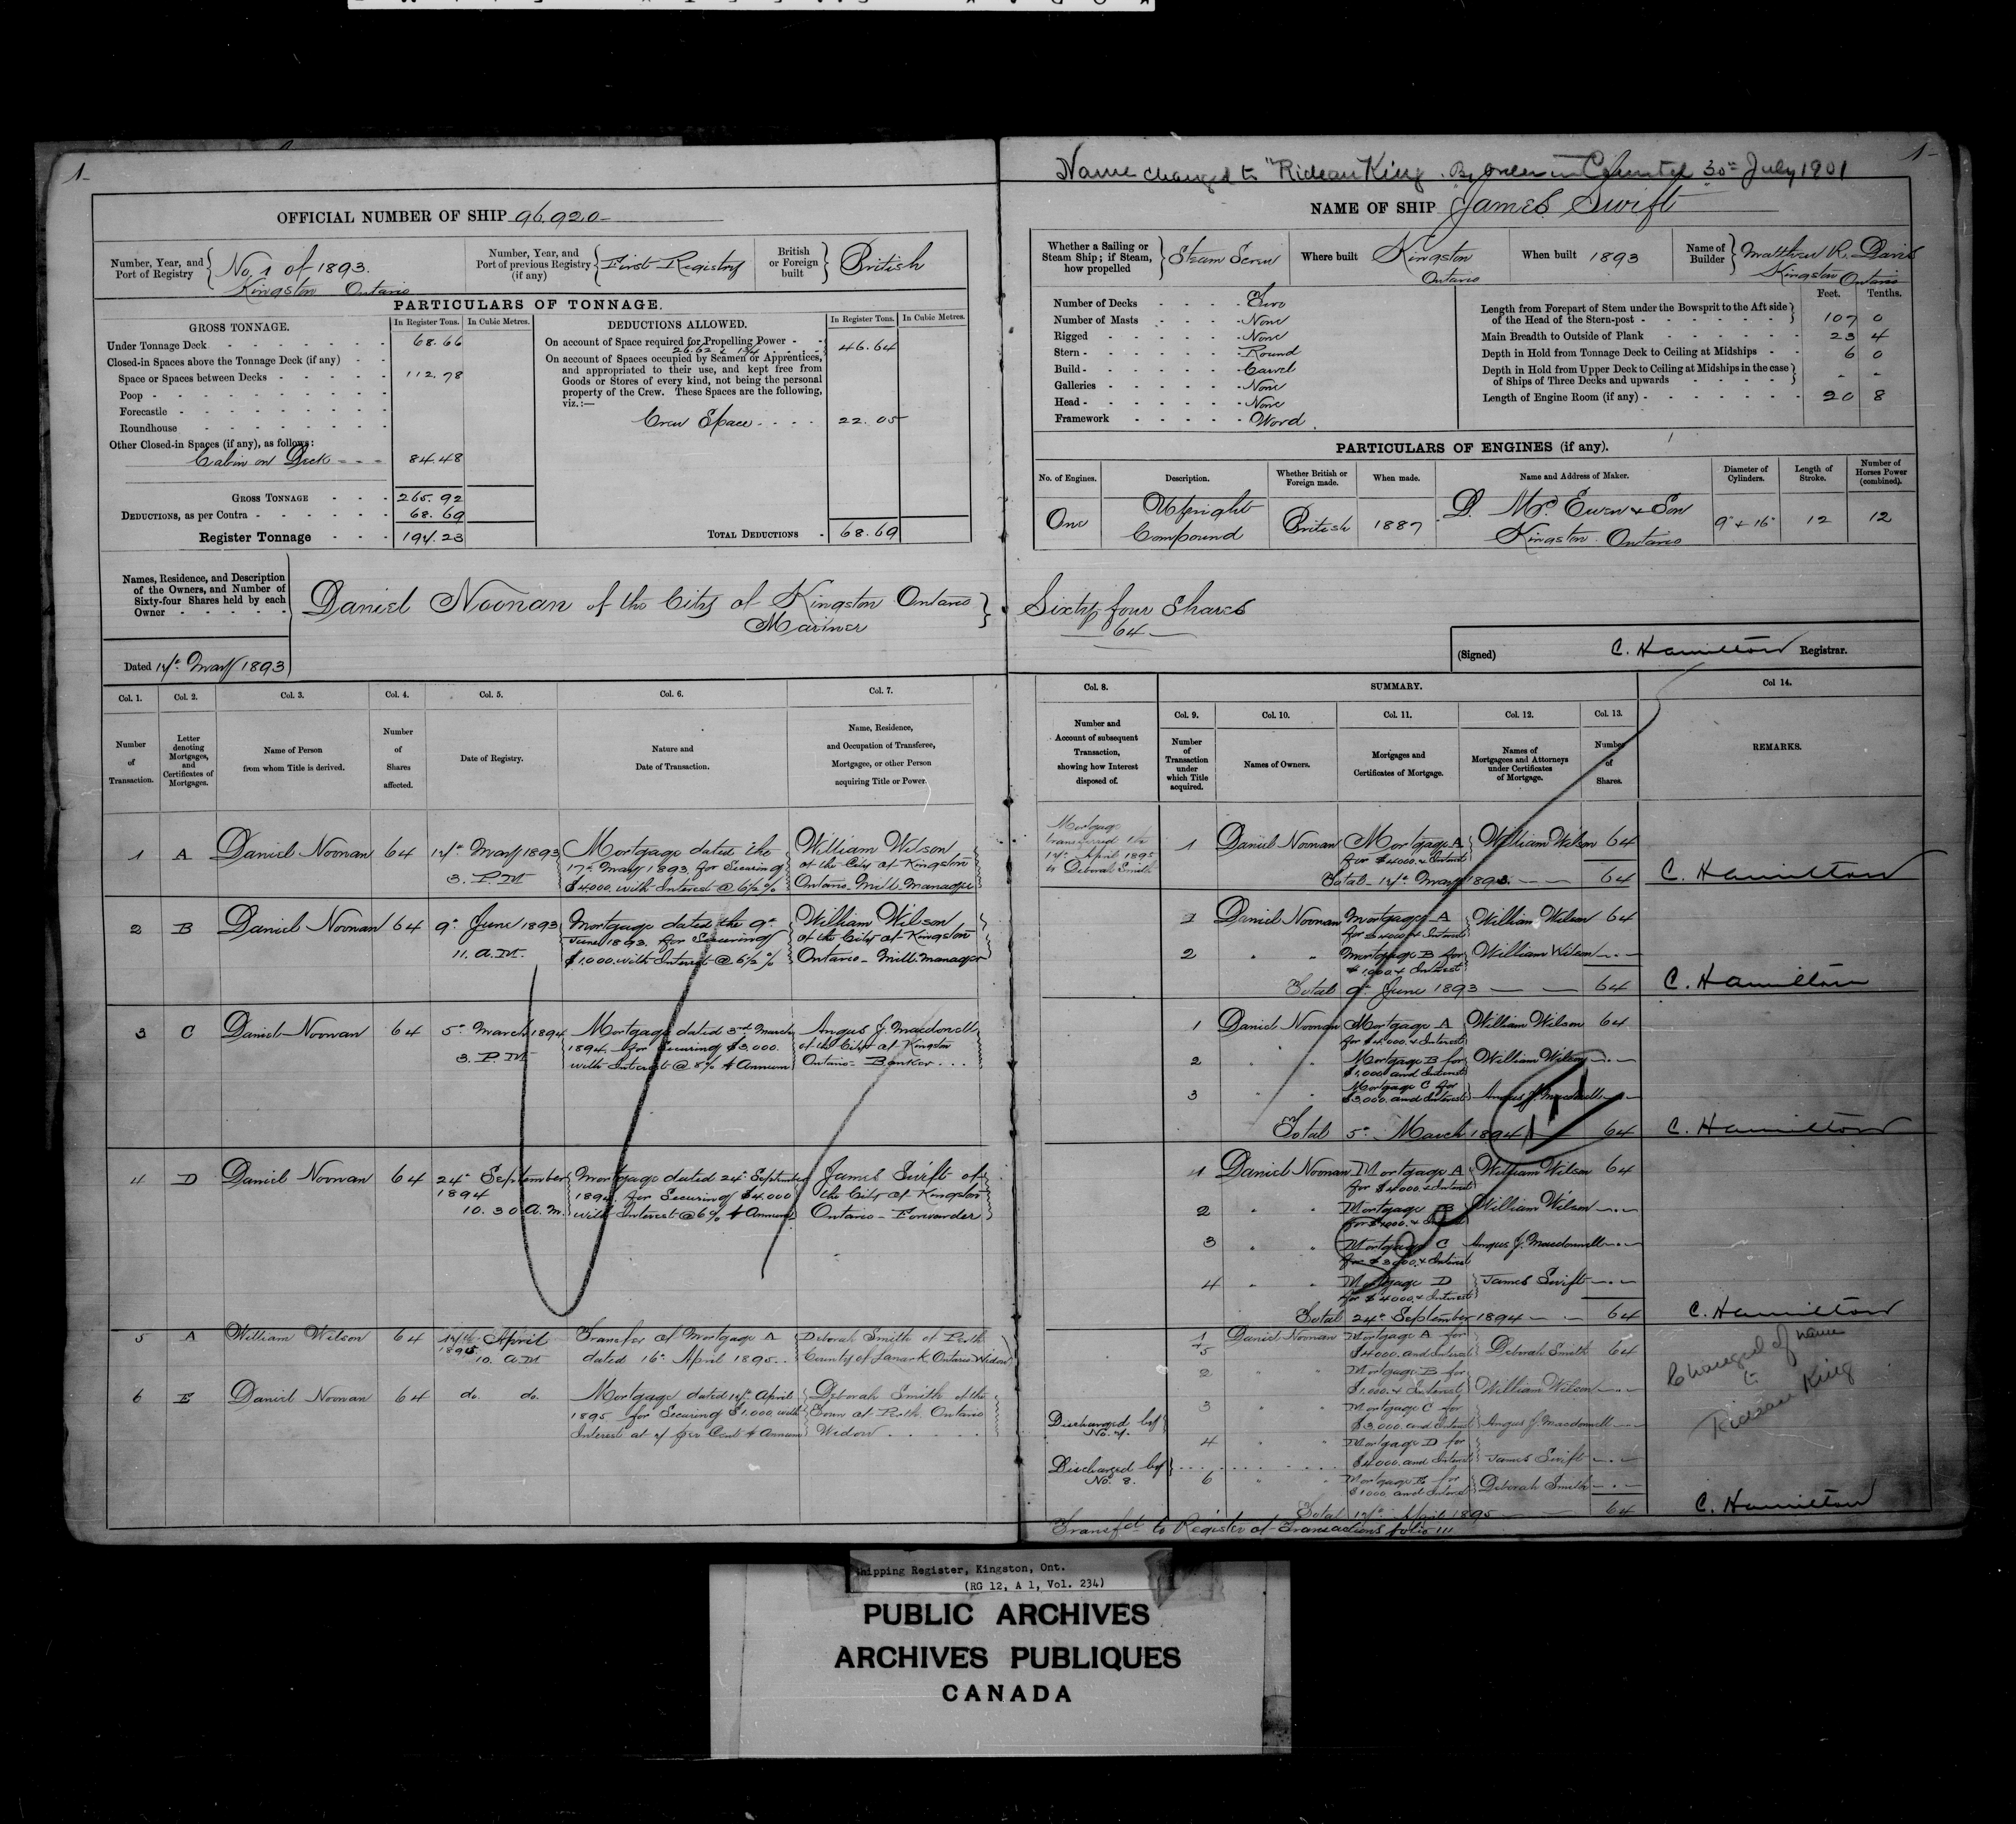 1-
OFFICIAL NUMBER OF SHIP 96.920-
Number, Year, and Port of Registry { No. 1 of 1893. Kingston Ontario
Number, Year, and Port of previous Registry (if any) { First Registry
British or Foreign built } British
PARTICULARS OF TONNAGE.
GROSS TONNAGE. In Register Tons. In Cubic Metres.
Under Tonnage Deck 68.66
Closed-in Spaces above the Tonnage Deck (if any)
Space or Spaces between Decks 112.78
Poop
Forecastle
Roundhouse
Other Closed-in Spaces (if any), as follows:
Cabin on Deck 84.48
GROSS TONNAGE 265.92
DEDUCTIONS, as per Contra 68.69
Register Tonnage 197.23
DEDUCTIONS ALLOWED. In Register Tons. In Cubic Metres.
On account of Space required for Propelling Power 46.64
26.62 × 1¾
On account of Spaces occupied by Seamen or Apprentices,
and appropriated to their use, and kept free from
Goods or Stores of every kind, not being the personal
property of the Crew. These Spaces are the following,
viz.:—
Crew Space 22.05
TOTAL DEDUCTIONS 68.69
Names, Residence, and Description
of the Owners, and Number of
Sixty-four Shares held by each
Owner
Daniel Noonan of the City of Kingston Ontario }
Mariner
Dated 17th May 1893
Col. 1. Col. 2. Col. 3. Col. 4. Col. 5. Col. 6. Col. 7.
Number of Transaction.
Letter denoting Mortgages, and Certificates of Mortgages.
Name of Person from whom Title is derived.
Number of Shares affected.
Date of Registry.
Nature and Date of Transaction.
Name, Residence, and Occupation of Transferee, Mortgagee, or other Person acquiring Title or Power.
1 A Daniel Noonan 64 17th May 1893 Mortgage dated the William Wilson
17th May 1893 for Securing of the City of Kingston
3. P.M. $4000. with Interest @ 6½% Ontario Mill Manager
2 B Daniel Noonan 64 9th June 1893 Mortgage dated the 9th William Wilson
June 1893. for Securing of the City of Kingston
11. A.M. $1,000. with Interest @ 6½% Ontario - Mill Manager
3 C Daniel Noonan 64 5th March 1894 Mortgage dated 3rd March Angus J. Macdonell
1894 for Securing $3,000. of the City of Kingston
3. P.M. with Interest @ 8% ⅌ Annum Ontario - Banker
4 D Daniel Noonan 64 24th September Mortgage dated 24th September James Swift of
1894 1894. for Securing $4.000 the City of Kingston
10.30 A.M. with Interest @ 6% ⅌ Annum Ontario - Forwarder
5 A William Wilson 64 17th April Transfer of Mortgage A Deborah Smith of Perth
1895 10. A.M dated 16th April 1895 County of Lanark Ontario Widow
6 E Daniel Noonan 64 do. do. Mortgage dated 17th April Deborah Smith of the
1895 for Securing $1.000 with Town of Perth. Ontario
Interest at 7 per Cent ⅌ Annum Widow
1-
Name changed to "Rideau King. By Order in Council 30th July 1901
NAME OF SHIP James Swift
Whether a Sailing or Steam Ship; if Steam, how propelled } Steam Screw
Where built Kingston Ontario
When built 1893
Name of Builder } Matthew R. Davis Kingston Ontario
Number of Decks Two
Number of Masts None
Rigged None
Stern Round
Build Carvel
Galleries None
Head None
Framework Wood.
Feet. Tenths.
Length from Forepart of Stem under the Bowsprit to the Aft side
of the Head of the Stern-post 107 0
Main Breadth to Outside of Plank 23 4
Depth in Hold from Tonnage Deck to Ceiling at Midships 6 0
Depth in Hold from Upper Deck to Ceiling at Midships in the case
of Ships of Three Decks and upwards - -
Length of Engine Room (if any) 20 8
PARTICULARS OF ENGINES (if any).
No. of Engines. Description. Whether British or Foreign made. When made. Name and Address of Maker. Diameter of Cylinders. Length of Stroke. Number of Horses Power (combined).
One Upright Compound British 1887 D. McEwen & Son Kingston. Ontario 9" & 16" 12 12
Sixty four Shares
64
(Signed) C. Hamilton Registrar.
Col. 8. SUMMARY. Col 14.
Col. 9. Col. 10. Col. 11. Col. 12. Col. 13.
Number and Account of subsequent Transaction, showing how Interest disposed of.
Number of Transaction under which Title acquired.
Names of Owners.
Mortgages and Certificates of Mortgage.
Names of Mortgagees and Attorneys under Certificates of Mortgage.
Number of Shares.
REMARKS.
Mortgage transferred the 17th April 1895 to Deborah Smith
1 Daniel Noonan Mortgage A William Wilson 64
for $4000. & Interest
Total - 17th May 1893. 64 C. Hamilton
1 Daniel Noonan Mortgage A William Wilson 64
for $4000 & Interest
2 " " Mortgage B for William Wilson
$1,000 & Interest
Total 9th June 1893 64 C. Hamilton
1 Daniel Noonan Mortgage A William Wilson 64
for $4000. & Interest
2 " Mortgage B for William Wilson
$1,000 and Interest
3 " " Mortgage C for
$3,000. and Interest Angus J. Macdonell
Total 5th March 1894 64 C. Hamilton
1 Daniel Noonan Mortgage A William Wilson 64
for $4000. & Interest
2 " " Mortgage B William Wilson
for $1000. & Interest
3 " " Mortgage C Angus J. Macdonnell
for $3000. & Interest
4 " " Mortgage D James Swift
for $4000. & Interest
Total 24th September 1894 64 C. Hamilton
1 5 Daniel Noonan Mortgage A for
$4000. and Interest Deborah Smith 64
2 Mortgage B for
$1,000. & Interest William Wilson
3 Mortgage C for
$3000. and Interest Angus J. Macdonnell
Discharged by No. 7.
4 " " Mortgage D for
$4000. and Interest James Swift
Discharged by No. 8.
6 " " Mortgage E for
$1000. and Interest Deborah Smith
Total 17th April 1895 64 C. Hamilton
Changed of name to Rideau King
Transfd to Register of Transactions folio 111
Shipping Register, Kingston, Ont.
(RG 12, A 1, Vol. 234)
PUBLIC ARCHIVES
ARCHIVES PUBLIQUES
CANADA